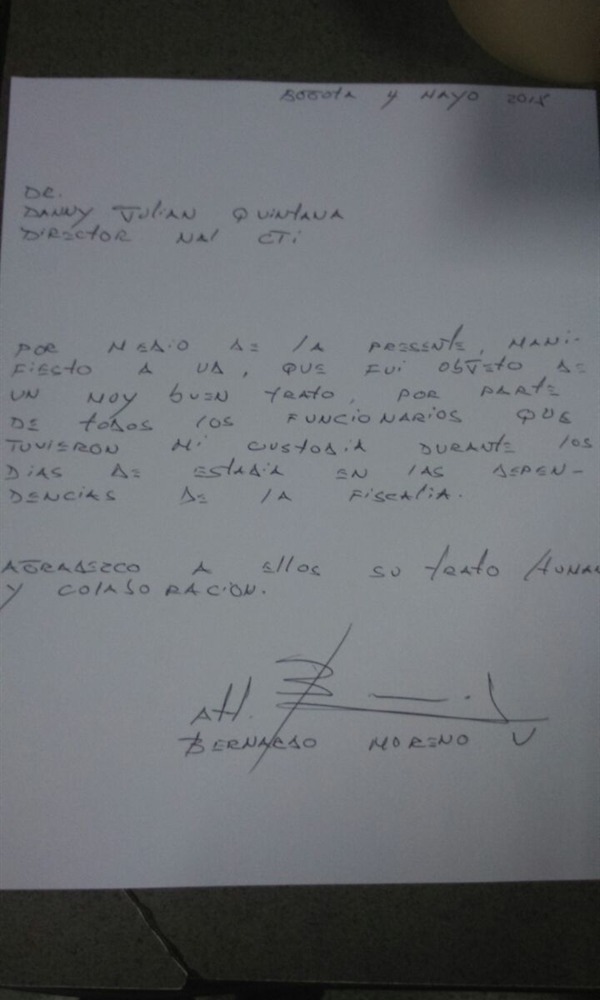 BOGOTA 4 MAYO 2018
DR.
DANNY JULIAN QUINTANA
DIRECTOR NAL CTI
POR MEDIO DE LA PRESENTE, MANI-
FIESTO A UD, QUE FUI OBJETO DE
UN MUY BUEN TRATO, POR PARTE
DE TODOS LOS FUNCIONARIOS QUE
TUVIERON MI CUSTODIA DURANTE LOS
DIAS DE ESTADIA EN LAS DEPEN-
DENCIAS DE LA FISCALIA.
AGRADEZCO A ELLOS SU TRATO HUMAN
Y COLABORACION.
Att.
BERNARDO MORENO V